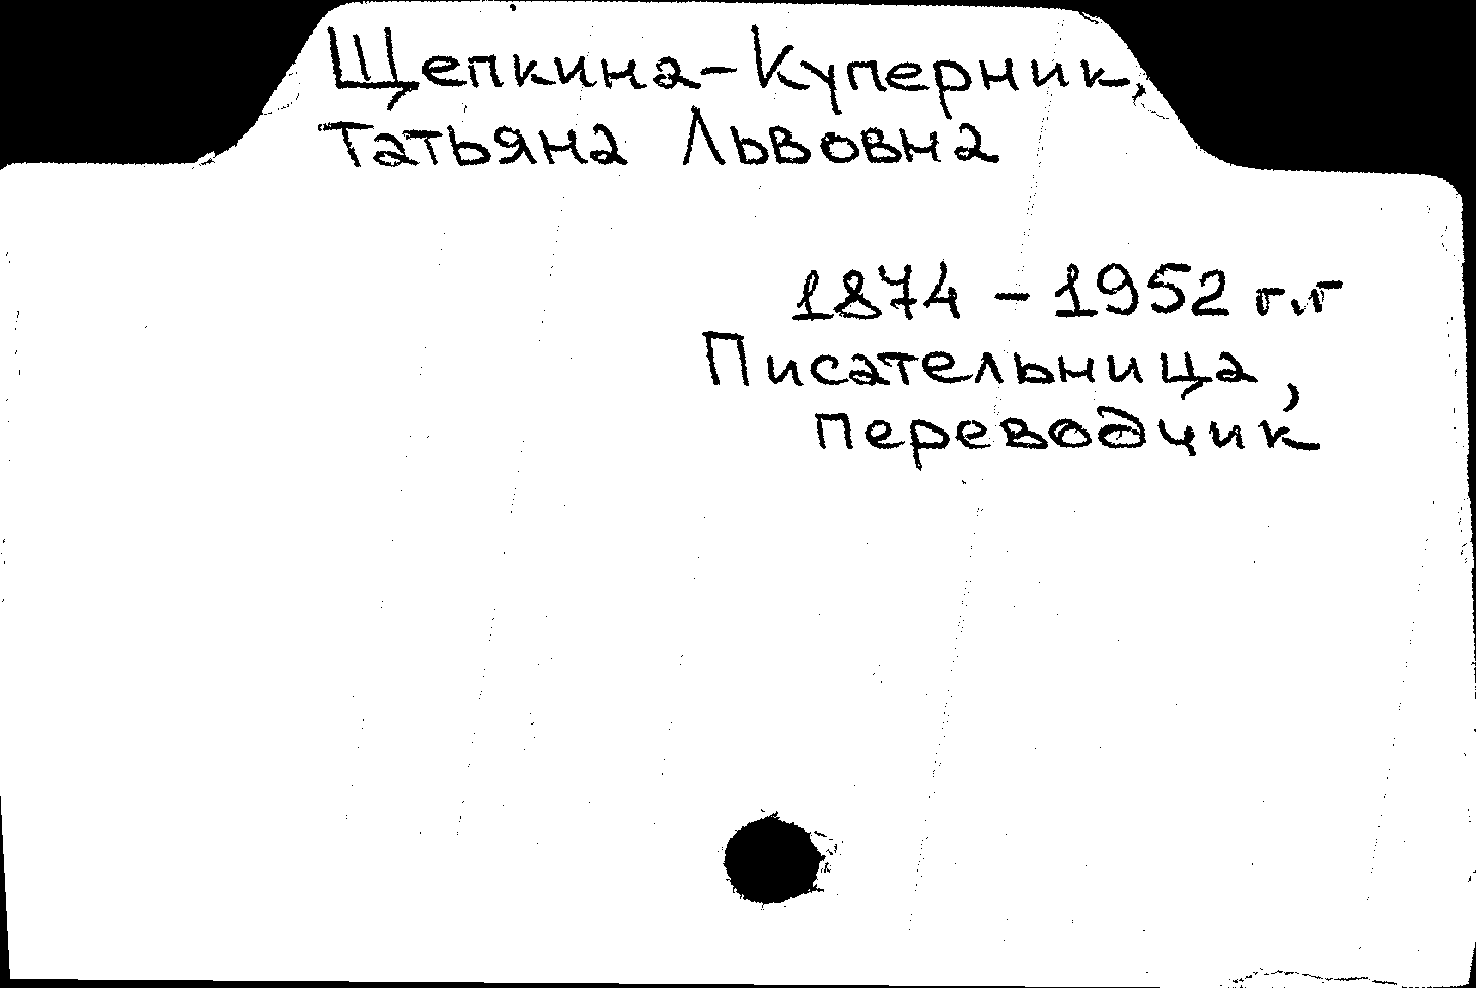 Щепкина-Куперник,
Татьяна Львовна
1874 - 1952 г.г
Писательница,
переводчик